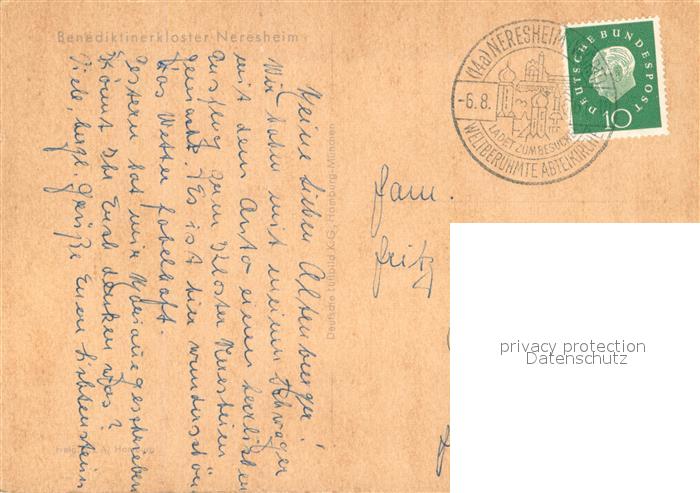 Benediktinerkloster Neresheim
Meine lieben Altenburger!
Wir haben mit meinem Schwager
mit dem Auto einen herrlichen
Ausflug zum Kloster Neresheim
gemacht. Es ist hier wunderschön
das Wetter fabelhaft.
Gestern hat mir geschrieben
Könnt Ihr Euch denken was?
Viele, herzl. Grüße Euere Lichtenstein
Deutsche Luftbild K.G., Hamburg-München
Hamburg
(14a) NERESHEIM
-6.8.
LADET ZUM BESUCH
WELTBERÜHMTE ABTEIKIRCHE
DEUTSCHE BUNDESPOST
10
Fam.
Fritz
privacy protection
Datenschutz